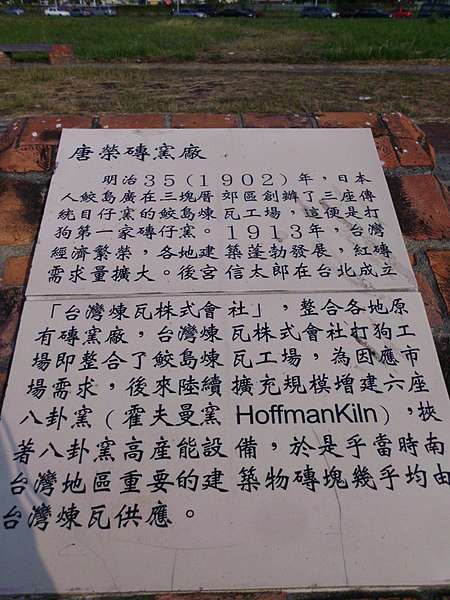 唐榮磚窯廠
明治35(1902)年，日本
人鮫島廣在三塊厝郊區創辦了三座傳
統目仔窯的鮫島煉瓦工場，這便是打
狗第一家磚仔窯。1913年，台灣
經濟繁榮，各地建築蓬勃發展，紅磚
需求量擴大。後宮信太郎在台北成立
「台灣煉瓦株式會社」，整合各地原
有磚窯廠，台灣煉瓦株式會社打狗工
場即整合了鮫島煉瓦工場，為因應市
場需求，後來陸續擴充規模增建六座
八卦窯(霍夫曼窯HoffmanKiln)，挾
著八卦窯高產能設備，於是乎當時南
台灣地區重要的建築物磚塊幾乎均由
台灣煉瓦供應。